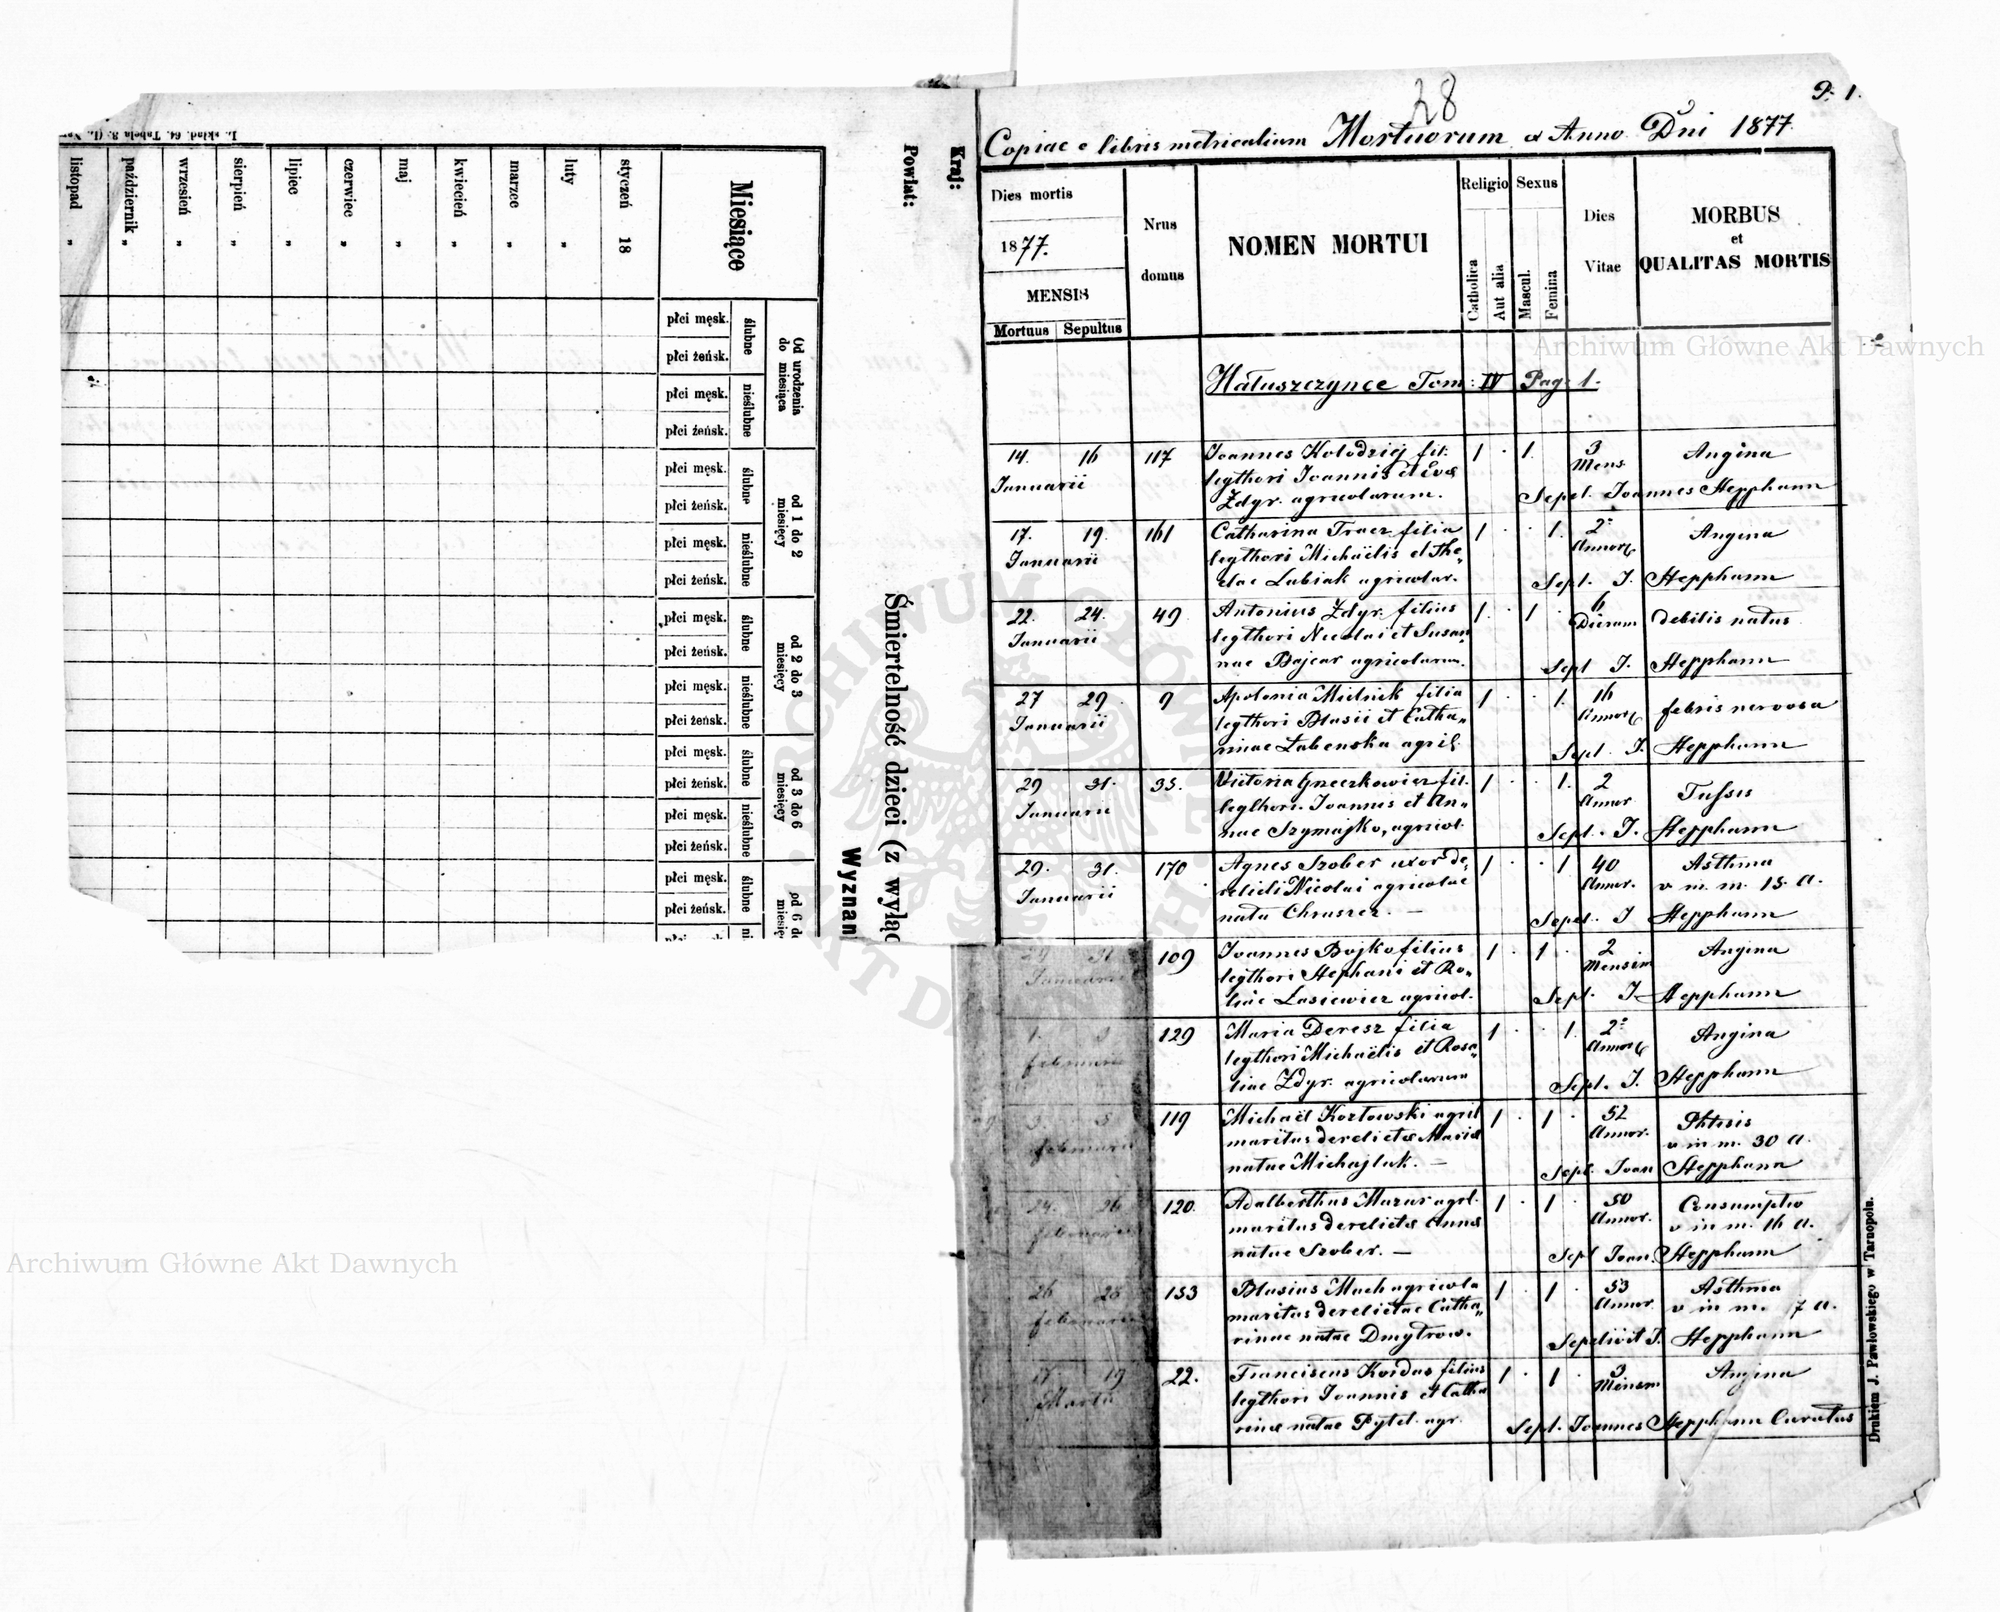 L. skład. 64. Tabela 3. (L.
Kraj:
Powiat:
Śmiertelność dzieci (z wyłąc
Wyznan
Miesiące
styczeń 18
luty „
marzec „
kwiecień „
maj „
czerwiec „
lipiec „
sierpień „
wrzesień „
październik „
listopad „
Od urodzenia do miesiąca
ślubne
płci męsk.
płci żeńsk.
nieślubne
płci męsk.
płci żeńsk.
od 1 do 2 miesięcy
ślubne
płci męsk.
płci żeńsk.
nieślubne
płci męsk.
płci żeńsk.
od 2 do 3 miesięcy
ślubne
płci męsk.
płci żeńsk.
nieślubne
płci męsk.
płci żeńsk.
od 3 do 6 miesięcy
ślubne
płci męsk.
płci żeńsk.
nieślubne
płci męsk.
płci żeńsk.
od 6 d
miesię
ślubne
płci męsk.
płci żeńsk.
ni
28
1.
Copiae e libris metricalium Mortuorum ex Anno Dni 1877.
Dies mortis
1877.
MENSIS
Mortuus Sepultus
Nrus domus
NOMEN MORTUI
Religio
Catholica
Aut alia
Sexus
Mascul.
Femina
Dies Vitae
MORBUS
et
QUALITAS MORTIS
Hałuszczynce Tom: IV Pag: 1.
14. 16 117 Joannes Kołodziej fil: 1 · 1. 3 Angina
Januarii legthori Joannis et Evae Mens.
Zdyr. agricolarum. Sepel. Joannes Stepphann
17. 19. 161 Catharina Tracz filia 1 · · 1. 2 Angina
Januarii legthori Michaëlis et The„ Annor
clae Lubiak agricolar. Sepl. J. Stepphann
22. 24. 49 Antonius Zdyr. filius 1. · 1 · 6 debilis natus
Januarii legthori Nicolai et Susan Dierum
nae Bajcar agricolarum. Sepl J. Stepphann
27 29 9 Apolonia Mielnik filia 1 · · 1. 16 febris nervosa
Januarii legthori Blasii et Catha„ Annor
rinae Łabenska agril. Sepl. J. Stepphann
29 31. 35. Victoria Gneczkowicz fil. 1 · · 1. 2 Tussis
Januarii legthori Joannis et An„ Annor
nae Szymajko, agricol. Sepl. J. Stepphann
29. 31. 170 Agnes Szober uxor de„ 1 · · 1 40 Asthma
Januarii relicti Nicolai agricolae Annor. v. in m. 15. a.
nata Chruszcz. — Sepel. J Stepphann
29 31 109 Joannes Bojko filius 1 · 1 · 2 Angina
Januarii legthori Stephani et Ro„ Mensim
liae Lasiewicz agricol. Sepl. J. Stepphann
1. 3 129 Maria Deresz filia 1 · · 1. 2 Angina
februarii legthori Michaëlis et Rosa„ Annor
liae Zdyr. agricolarum Sepl. J. Stepphann
3. 5 119 Michaël Kozłowski agril 1 · 1 · 52 Phtisis
februarii maritus derelictae Mariae Annor. v in m. 30 a.
natae Michajluk. — Sepl. Joan Stepphann
24. 26 120. Adalberthus Mazur agrl. 1 · 1 · 50 Consumptio
februarii maritus derelictae Annae Annor. v in m. 16 a.
natae Szober. — Sepl Joan. Stepphann
26 28 153 Blasius Mach agricola 1 · 1 · 53 Asthma
februarii maritus derelictae Catha„ Annor. v in m. 17 a.
rinae natae Dmytrow. Sepelivit J. Stepphann
17 19 22. Franciscus Kordas filius 1 · 1 · 3 Angina
Martii legthori Joannis et Catha Mensm
rinae natae Pytel. agr. Sepl. Joannes Stepphann Curatus
Drukiem J. Pawłowskiego w Tarnopolu.
Archiwum Główne Akt Dawnych
Archiwum Główne Akt Dawnych
ARCHIWUM GŁÓWNE AKT DAWNYCH